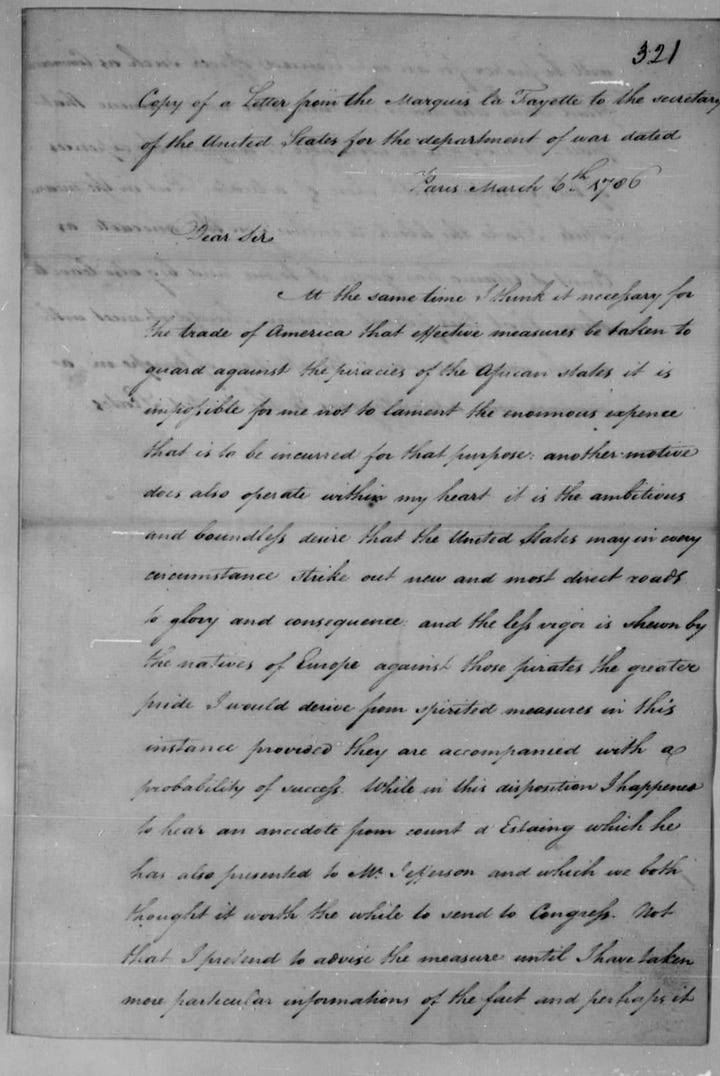 321
Copy of a Letter from the Marquis la Fayette to the secretary
of the United States for the department of war dated
Paris March 6th 1786
Dear Sir
At the same time I think it necessary for
the trade of America that effective measures be taken to
guard against the piracies of the African states it is
impossible for me not to lament the enormous expence
that is to be incurred for that purpose: another motive
does also operate within my heart it is the ambitious
and boundless desire that the United States may in every
circumstance strike out new and most direct roads
to glory and consequence: and the less vigor is shewn by
the natives of Europe against those pirates the greater
pride I would derive from spirited measures in this
instance provided they are accompanied with a
probability of success. While in this disposition I happened
to hear an anecdote from count d Estaing which he
has also presented to Mr. Jefferson and which we both
thought it worth the while to send to Congress. Not
that I pretend to advise the measure until I have taken
more particular informations of the fact and perhaps it